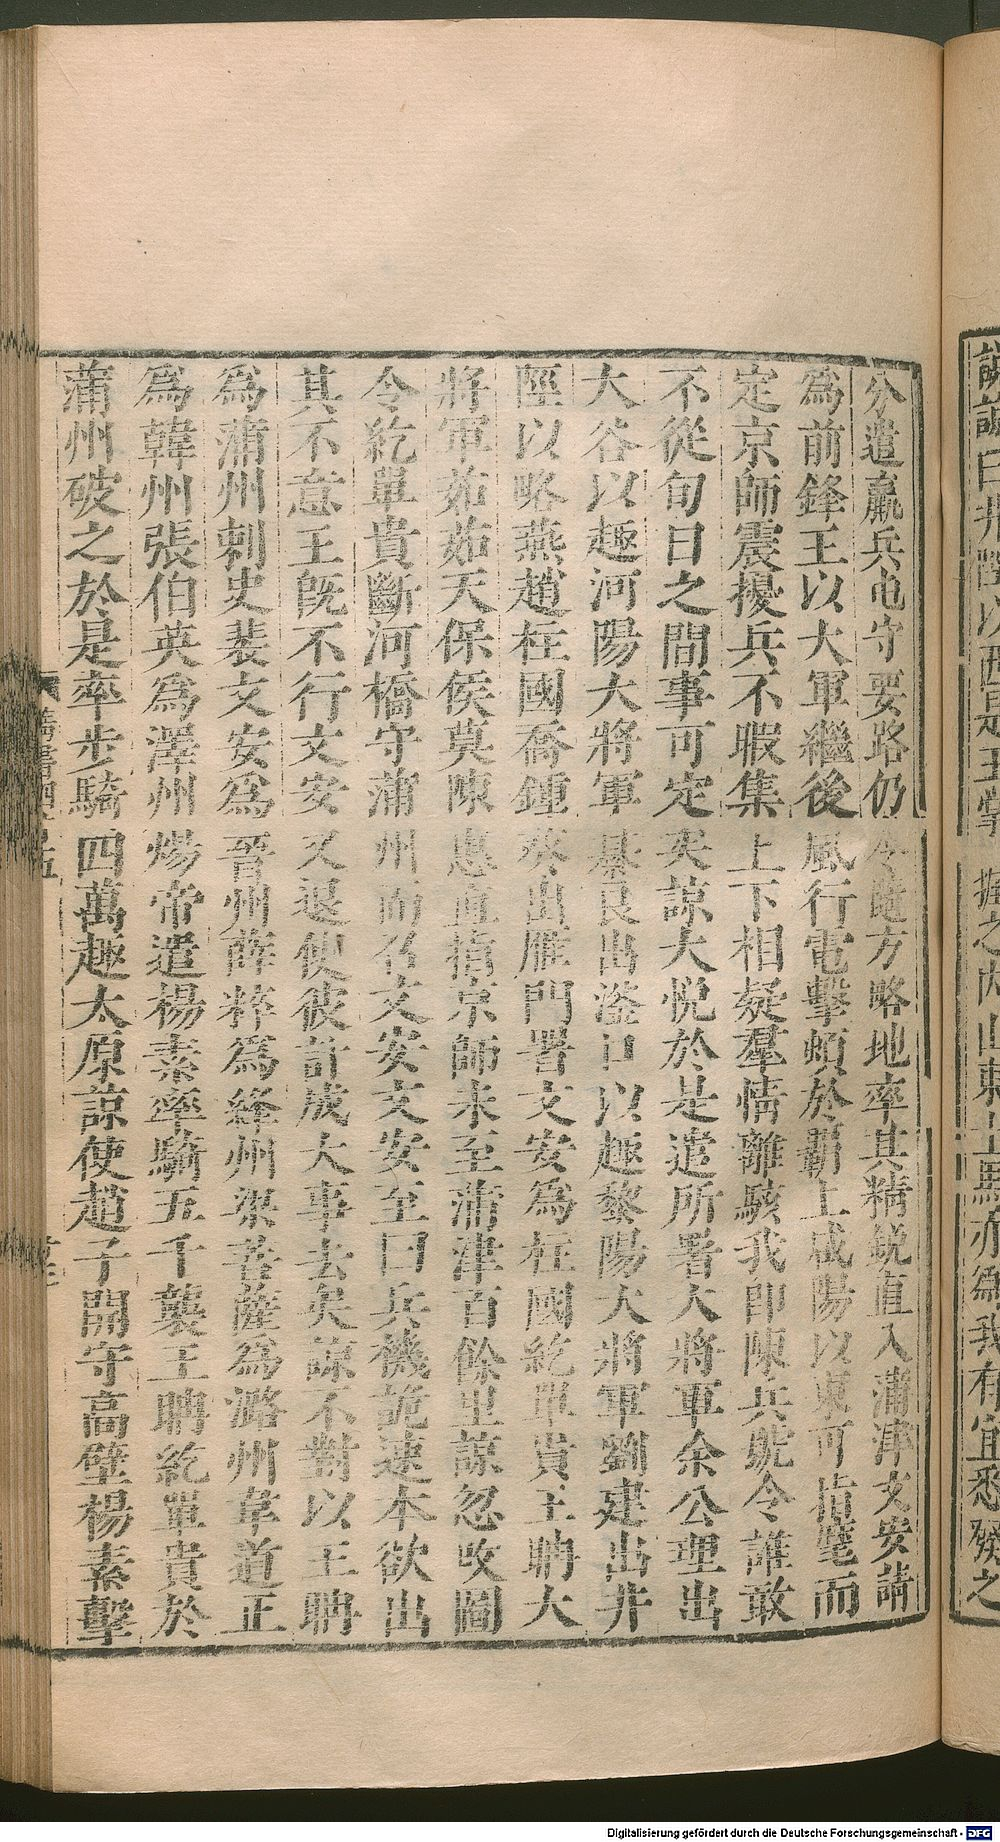 諭說曰井陘以西是王掌握之內山東士馬亦為我有宜悉發之
分遣羸兵屯守要路仍令隨方略地率其精銳直入蒲津文安請
為前鋒王以大軍繼後風行電擊頓於霸上咸陽以東可指麾而
定京師震擾兵不暇集上下相疑羣情離駭我即陳兵號令誰敢
不從旬日之間事可定矣諒大悅於是遣所署大將軍余公理出
大谷以趣河陽大將軍綦良出滏口以趣黎陽大將軍劉建出井
陘以略燕趙柱國喬鍾葵出雁門署文安為柱國紇單貴王聃大
將軍茹茹天保侯莫陳惠直指京師未至蒲津百餘里諒忽改圖
令紇單貴斷河橋守蒲州而召文安文安至曰兵機詭速本欲出
其不意王旣不行文安又退使彼計成大事去矣諒不對以王聃
為蒲州刺史裴文安為晉州薛粹為絳州梁菩薩為潞州韋道正
為韓州張伯英為澤州煬帝遣楊素率騎五千襲王聃紇單貴於
蒲州破之於是率步騎四萬趣太原諒使趙子開守高壁楊素擊
Digitalisierung gefördert durch die Deutsche Forschungsgemeinschaft - DFG